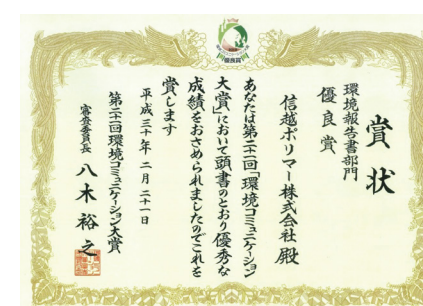 賞状
環境報告書部門
優良賞
信越ポリマー株式会社 殿
あなたは第二十一回「環境コミュニケーション
大賞」において頭書のとおり優秀な
成績をおさめられましたのでこれを
賞します
平成三十年 二月 二十一日
第二十一回環境コミュニケーション大賞
審査委員長 八木裕之
優良賞